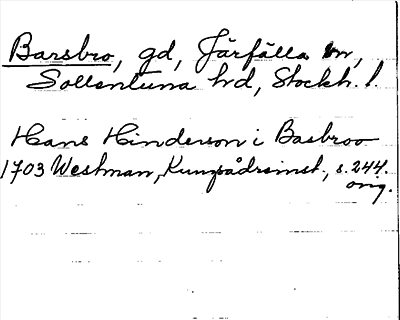 Barsbro, gd, Järfälla sn,
Sollentuna hrd, Stockh. l.
Hans Hinderson i Basbroo
1703 Westman, Kungsådreinst., s. 244.
orig.